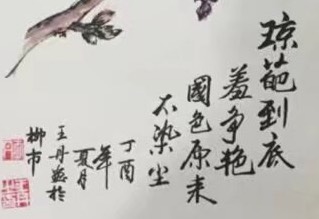 琼葩到底
羞争艳
國色原来
不染尘
丁酉
年
夏月
王丹於
柳市